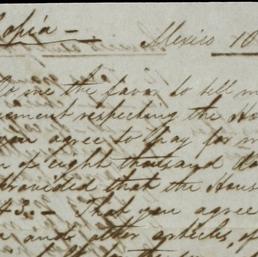 Copia —
Mexico 10
do me the favor to tell m
ement respecting the Ho
you agree to pay for m
of eight thousand do
provided that the Hous
43. — That you agree
and other articles, of